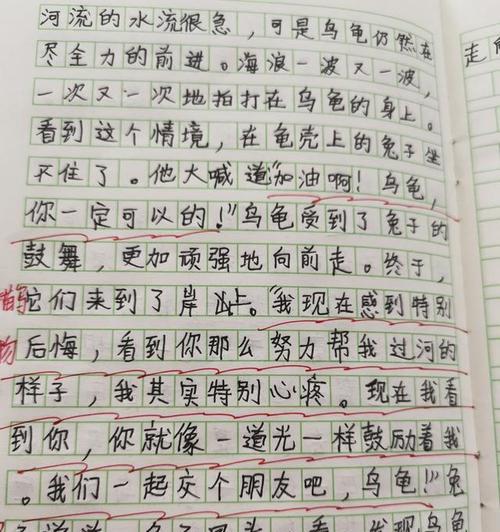 河流的水流很急，可是乌龟仍然在
尽全力的前进。海浪一波又一波，
一次又一次地拍打在乌龟的身上。
看到这个情境，在龟壳上的兔子坐
不住了。他大喊道“加油啊！乌龟，
你一定可以的！”乌龟受到了兔子的
鼓舞，更加顽强地向前走。终于，
它们来到了岸上。“我现在感到特别
后悔，看到你那么努力帮我过河的
样子，我其实特别心疼。现在我看
到你，你就像一道光一样鼓励着我
。我们一起交个朋友吧，乌龟！”兔
走